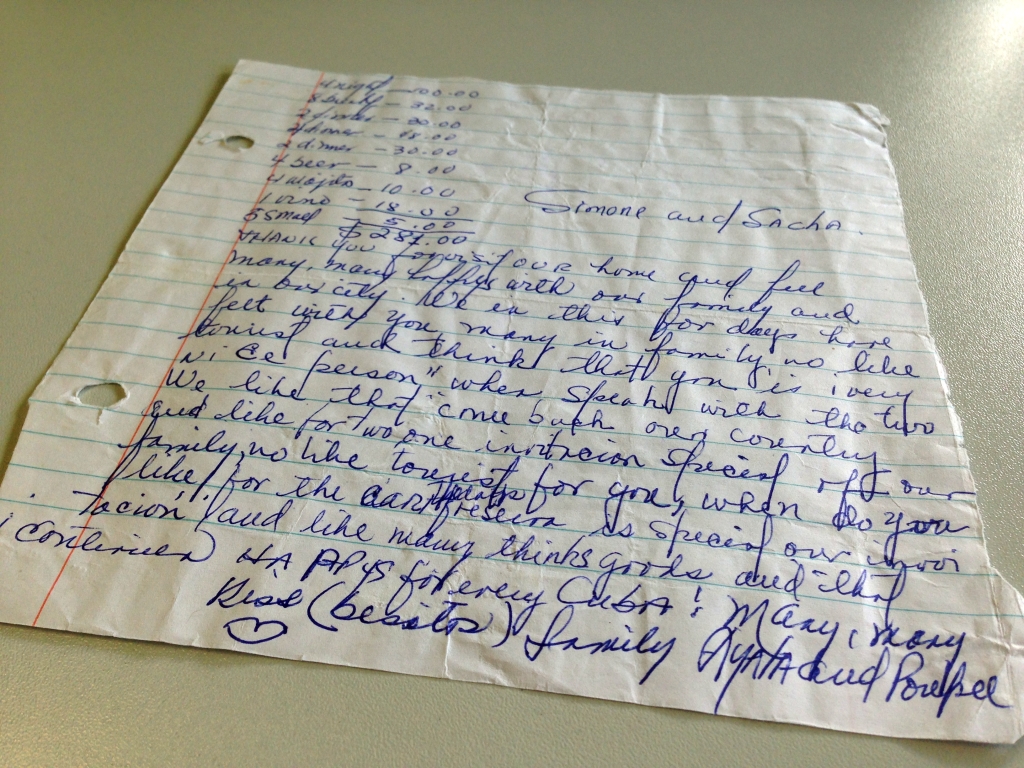 4 night — 100.00
32.00
2 dinner — 30.00
2 dinner
2 dinner — 30.00
4 beer — 8.00
4 Mojito — 10.00
1 vino — 18.00
5 small — 5.00
$ 287.00
Simone and Sacha.
THANK you for visit our home and feel
many, many happys with our family and
in our city. We en this for days have
felt with you many in family no like
tourist and think that you is "very
nice person" when speak with the two
We like that come back over country
and like for two one invitacion special off our
family, no like tourist for you, when do you
like, for the is special our invi
tacion, and like many thinks goods and that
continuen HAPPYS for every Cuba! Many, many
Kiss (besitos) family and